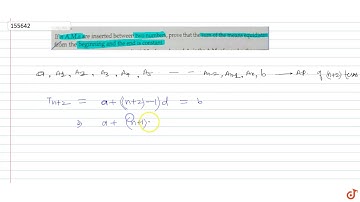 155642
If n A.M.s are inserted between two numbers, prove that the sum of the means equidistant
from the beginning and the end is constant.
a, A1, A2, A3, A4, A5 - - An-2, An-1, An, b → AP. of (n+2) terms
Tn+2 = a + ((n+2)-1)d = b
⇒ a + (n+1)